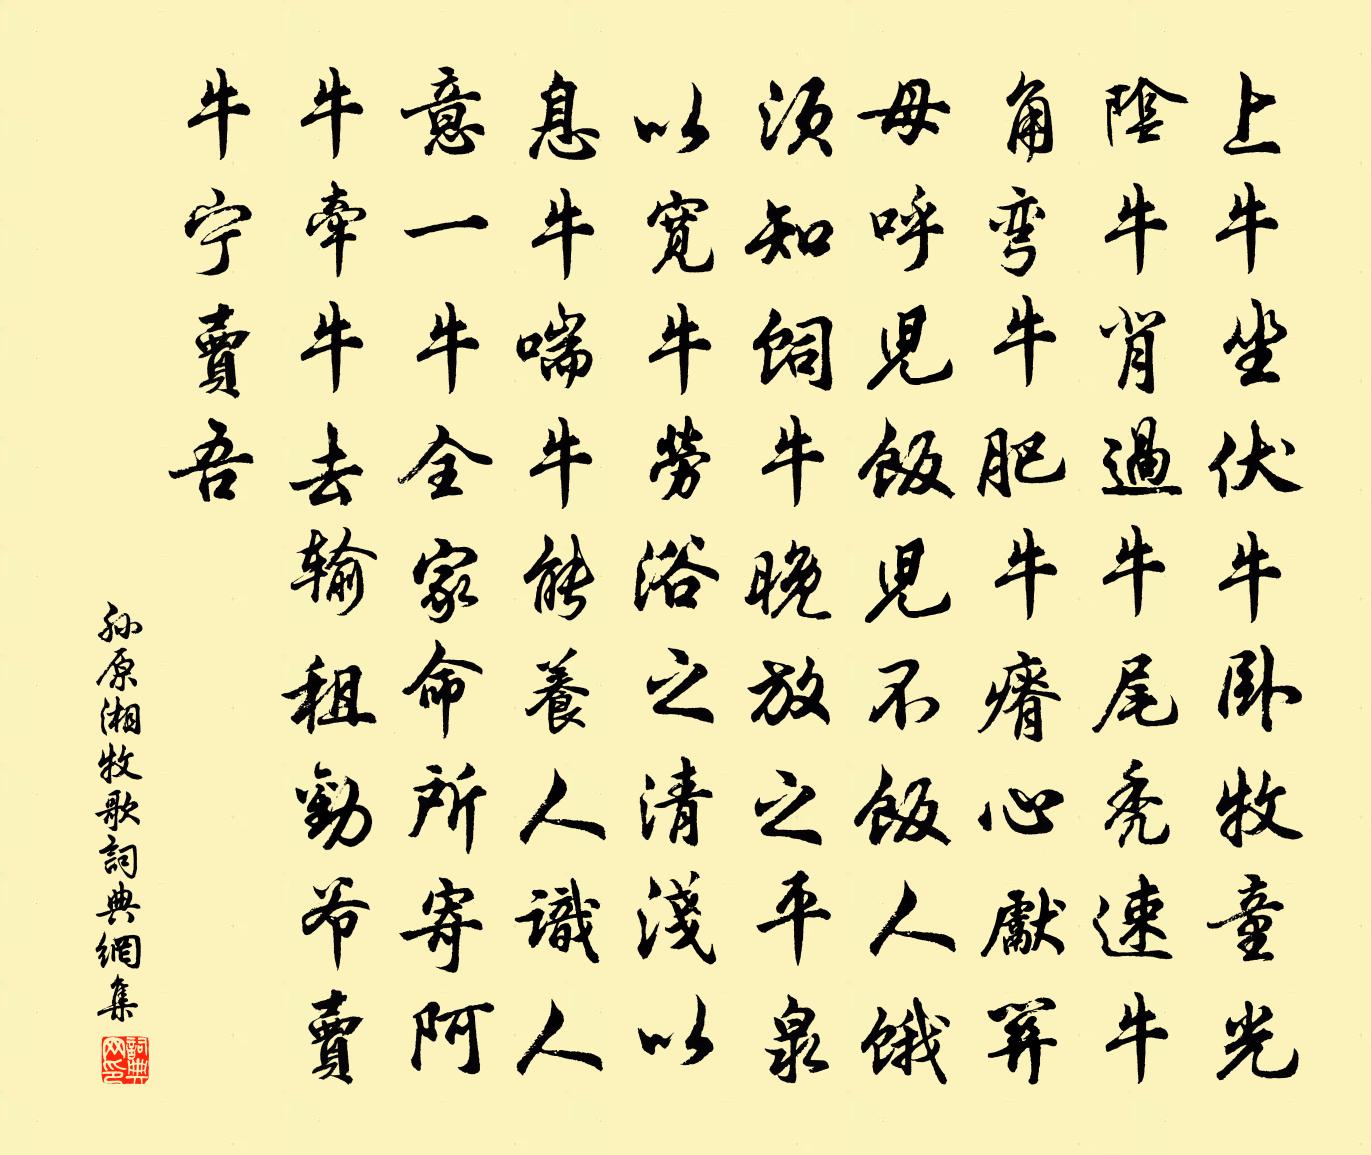 上牛坐伏牛卧牧童光
陰牛背過牛尾秃速牛
角弯牛肥牛瘠心獻關
母呼兒飯兒不飯人饿
须知饲牛晚放之平泉
以寬牛勞浴之清淺以
息牛喘牛能養人識人
意一牛全家命所寄阿
牛牽牛去输租勸爷賣
牛宁賣吾
孙原湘牧歌詞典網集
詞典网印